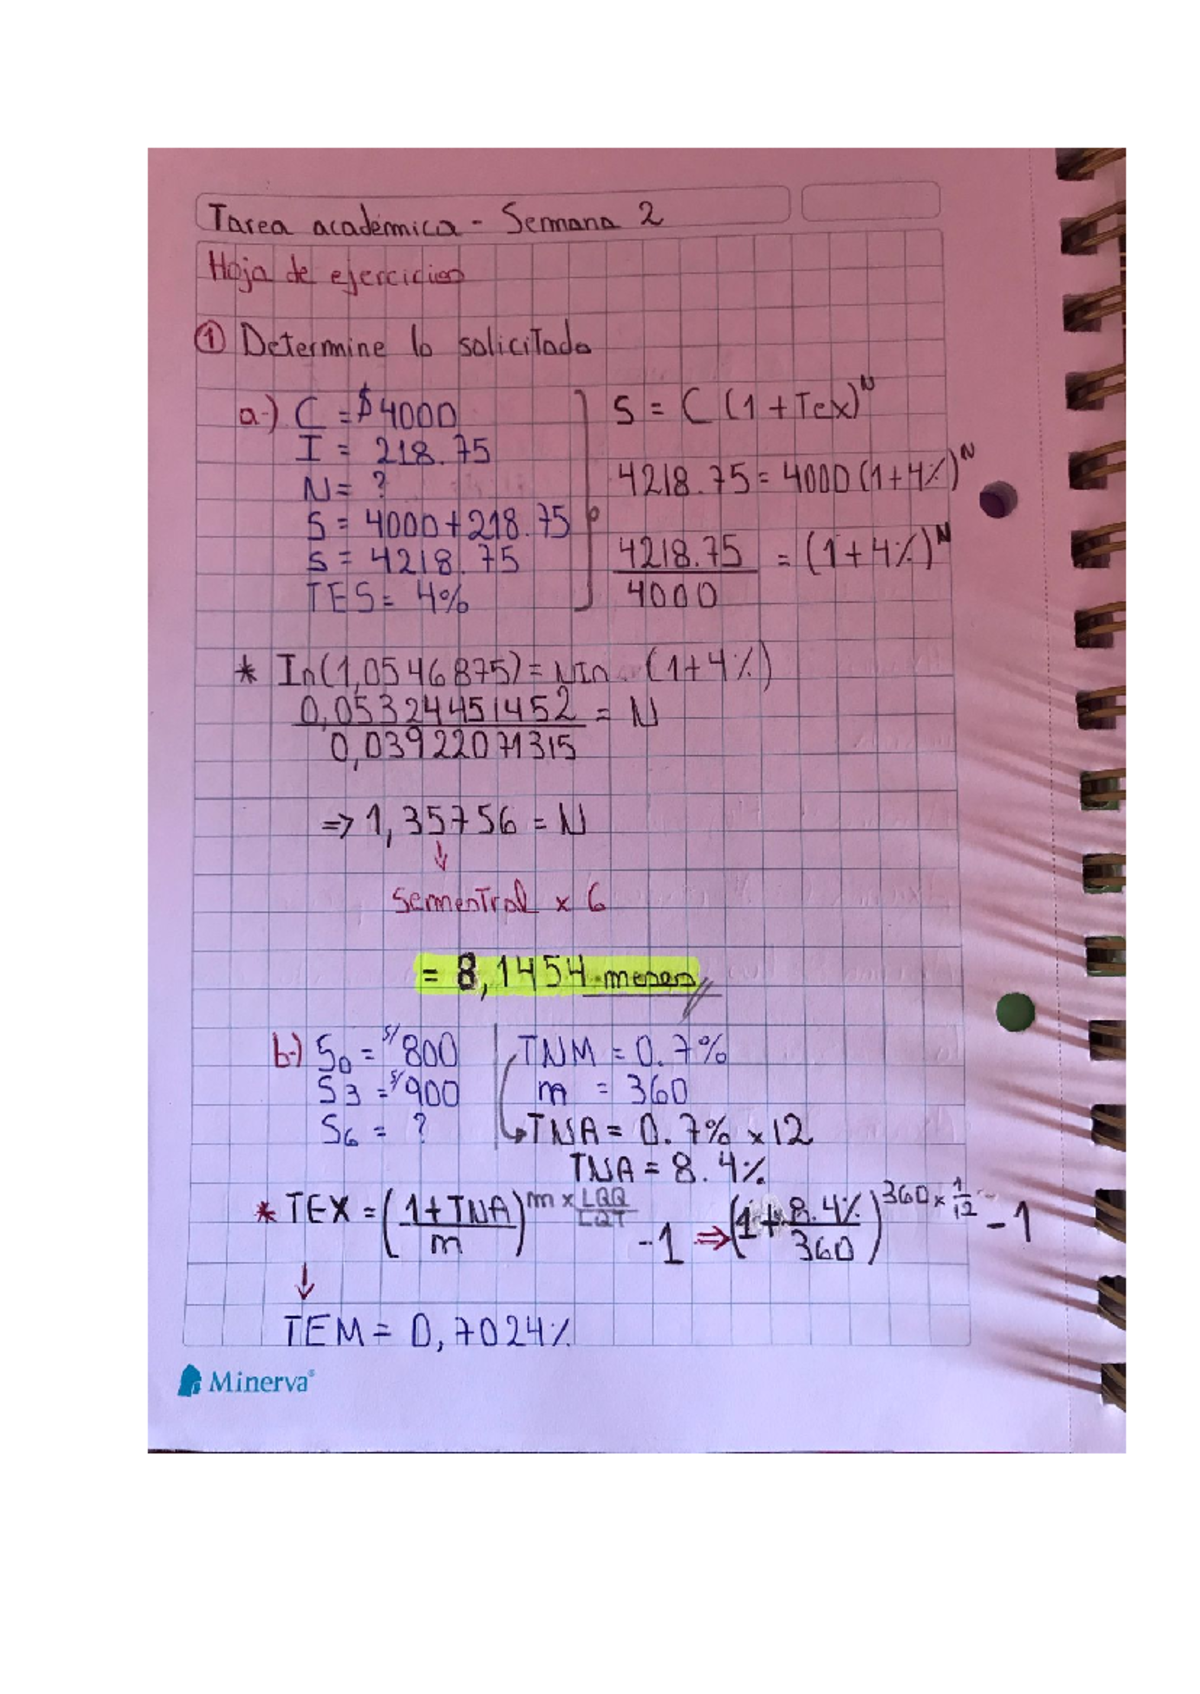 Tarea académica - Semana 2
Hoja de ejercicios
① Determine lo solicitado
a-) C = $4000
I = 218.75
N = ?
S = 4000+218.75
S = 4218.75
TES = 4%
S = C (1 + Tex)^N
4218.75 = 4000 (1+4%)^N
4218.75 / 4000 = (1+4%)^N
* In(1,0546875) = NIn (1+4%)
0,05324451452 / 0,03922071315 = N
⇒ 1,35756 = N
↓
Semestral x 6
= 8,1454 meses
b-) S0 = S/800
S3 = S/900
S6 = ?
TNM = 0.7%
m = 360
↳ TNA = 0.7% x 12
TNA = 8.4%
* TEX = (1+TNA / m)^m x LQQ/LQT - 1 ⇒ (1 + 8.4% / 360)^360 x 1/12 - 1
↓
TEM = 0,7024%
Minerva®